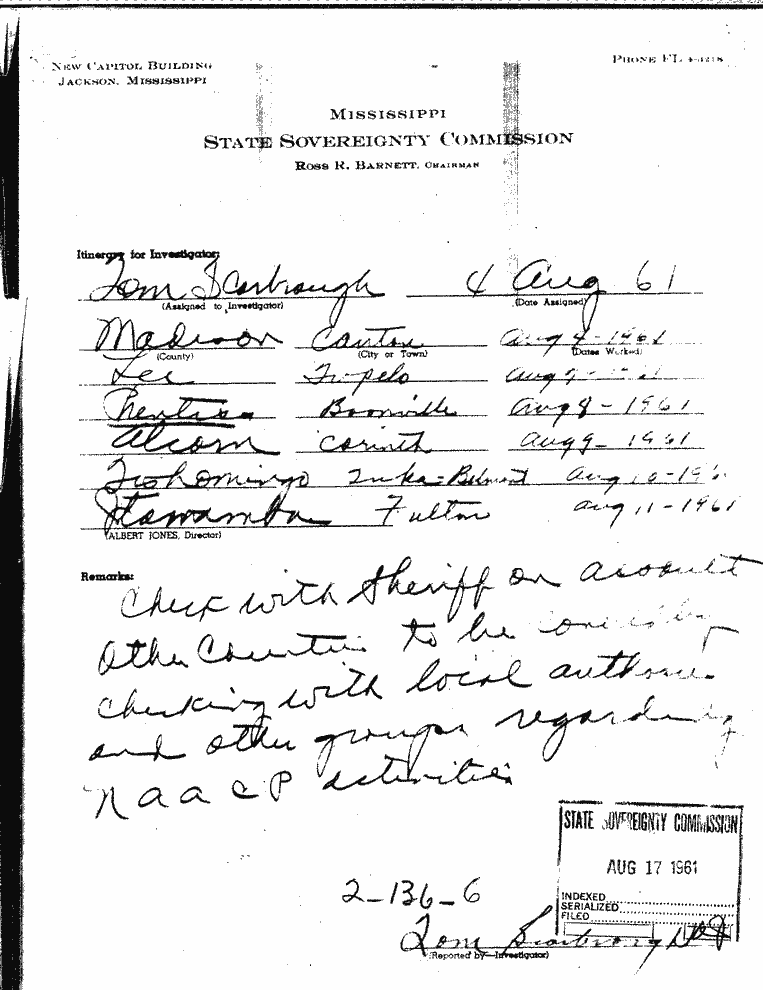 NEW CAPITOL BUILDING
JACKSON, MISSISSIPPI
PHONE FL 4-3218
MISSISSIPPI
STATE SOVEREIGNTY COMMISSION
ROSS R. BARNETT, CHAIRMAN
Itinerary for Investigator:
Tom Scarbrough 4 Aug 61
(Assigned to Investigator) (Date Assigned)
Madison Canton Aug 4-1961
(County) (City or Town) (Dates Worked)
Lee Tupelo Aug
Prentiss Boonville Aug 8-1961
Alcorn Corinth Aug 9-1961
Tishomingo Iuka-Belmont Aug 10-196
Itawamba Fulton Aug 11-1961
(ALBERT JONES, Director)
Remarks:
Check with Sheriff on assault
Other Counties to be by
checking with local
and other groups regarding
NAACP activities
STATE SOVEREIGNTY COMMISSION
AUG 17 1961
INDEXED
SERIALIZED
FILED
2-136-6
Tom Scarbrough
(Reported by—Investigator)